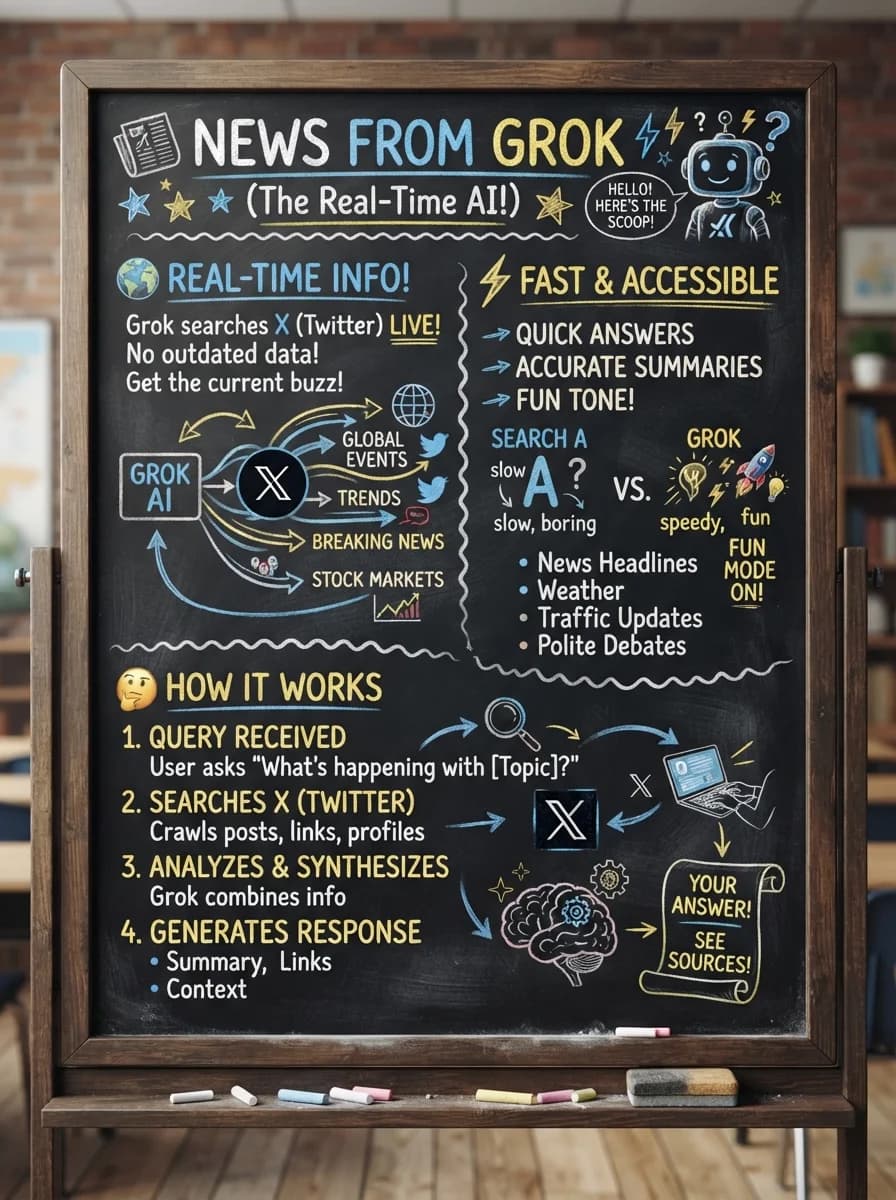 NEWS FROM GROK
(The Real-Time AI!)
HELLO!
HERE'S THE
SCOOP!
REAL-TIME INFO!
Grok searches X (Twitter) LIVE!
No outdated data!
Get the current buzz!
GROK
AI
X
GLOBAL
EVENTS
TRENDS
BREAKING NEWS
STOCK MARKETS
FAST & ACCESSIBLE
QUICK ANSWERS
ACCURATE SUMMARIES
FUN TONE!
SEARCH A
slow
A ?
slow, boring
VS.
GROK
speedy, fun
FUN
MODE
ON!
• News Headlines
• Weather
• Traffic Updates
• Polite Debates
HOW IT WORKS
1. QUERY RECEIVED
User asks “What's happening with [Topic]?”
2. SEARCHES X (TWITTER)
Crawls posts, links, profiles
3. ANALYZES & SYNTHESIZES
Grok combines info
4. GENERATES RESPONSE
• Summary, Links
• Context
X
X
YOUR
ANSWER!
SEE
SOURCES!